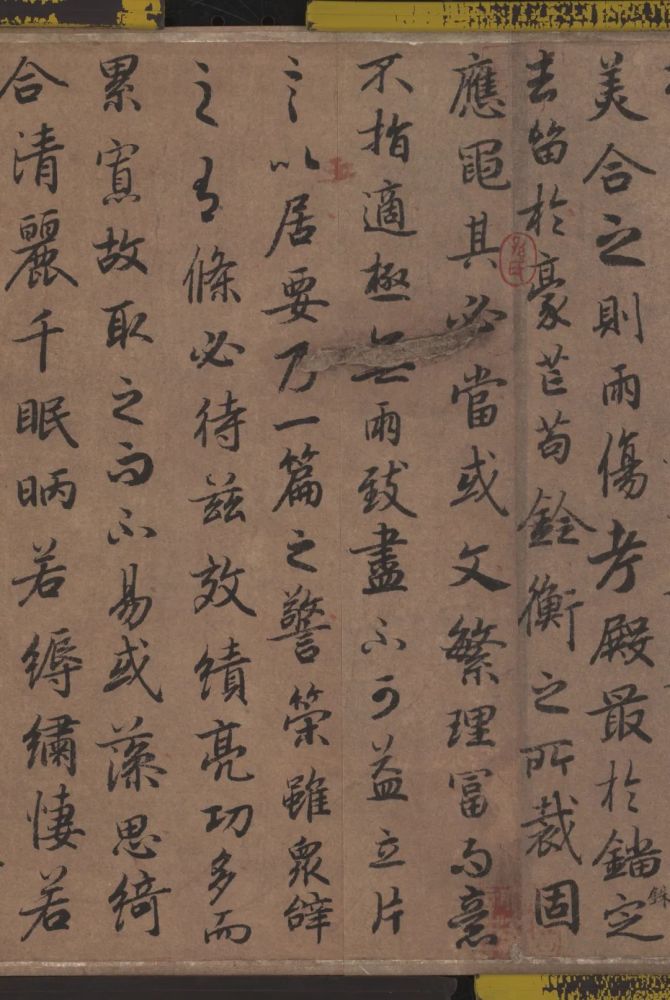 美合之則兩傷考殿最於錙定
銖
去留於豪芒苟銓衡之所裁固
應繩其必當或文繁理富而意
不指適極無兩致盡不可益立片
言以居要乃一篇之警策雖衆辭
之有條必待茲效績亮功多而
累寡故取之而不易或藻思綺
合清麗千眠昞若縟繡悽若